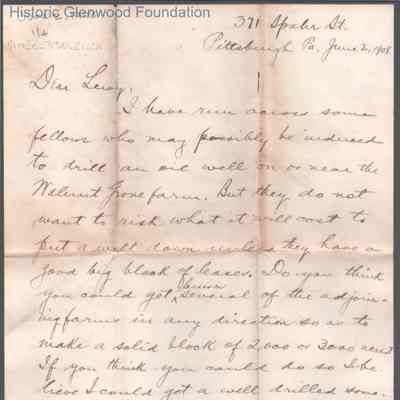 Historic Glenwood Foundation
371 Spahr St.
Pittsburgh Pa, June 2, 1908.
Dear Leroy,
I have run across some
fellows who may possibly be induced
to drill an oil well on or near the
Walnut Grove farm. But they do not
want to risk what it will cost to
put a well down unless they have a
good big block of leases. Do you think
you could get leases
several of the adjoin-
ing farms in any direction so as to
make a solid block of 2000 or 3000 acres
If you think you could do so I be
lieve I could get a well drilled some-